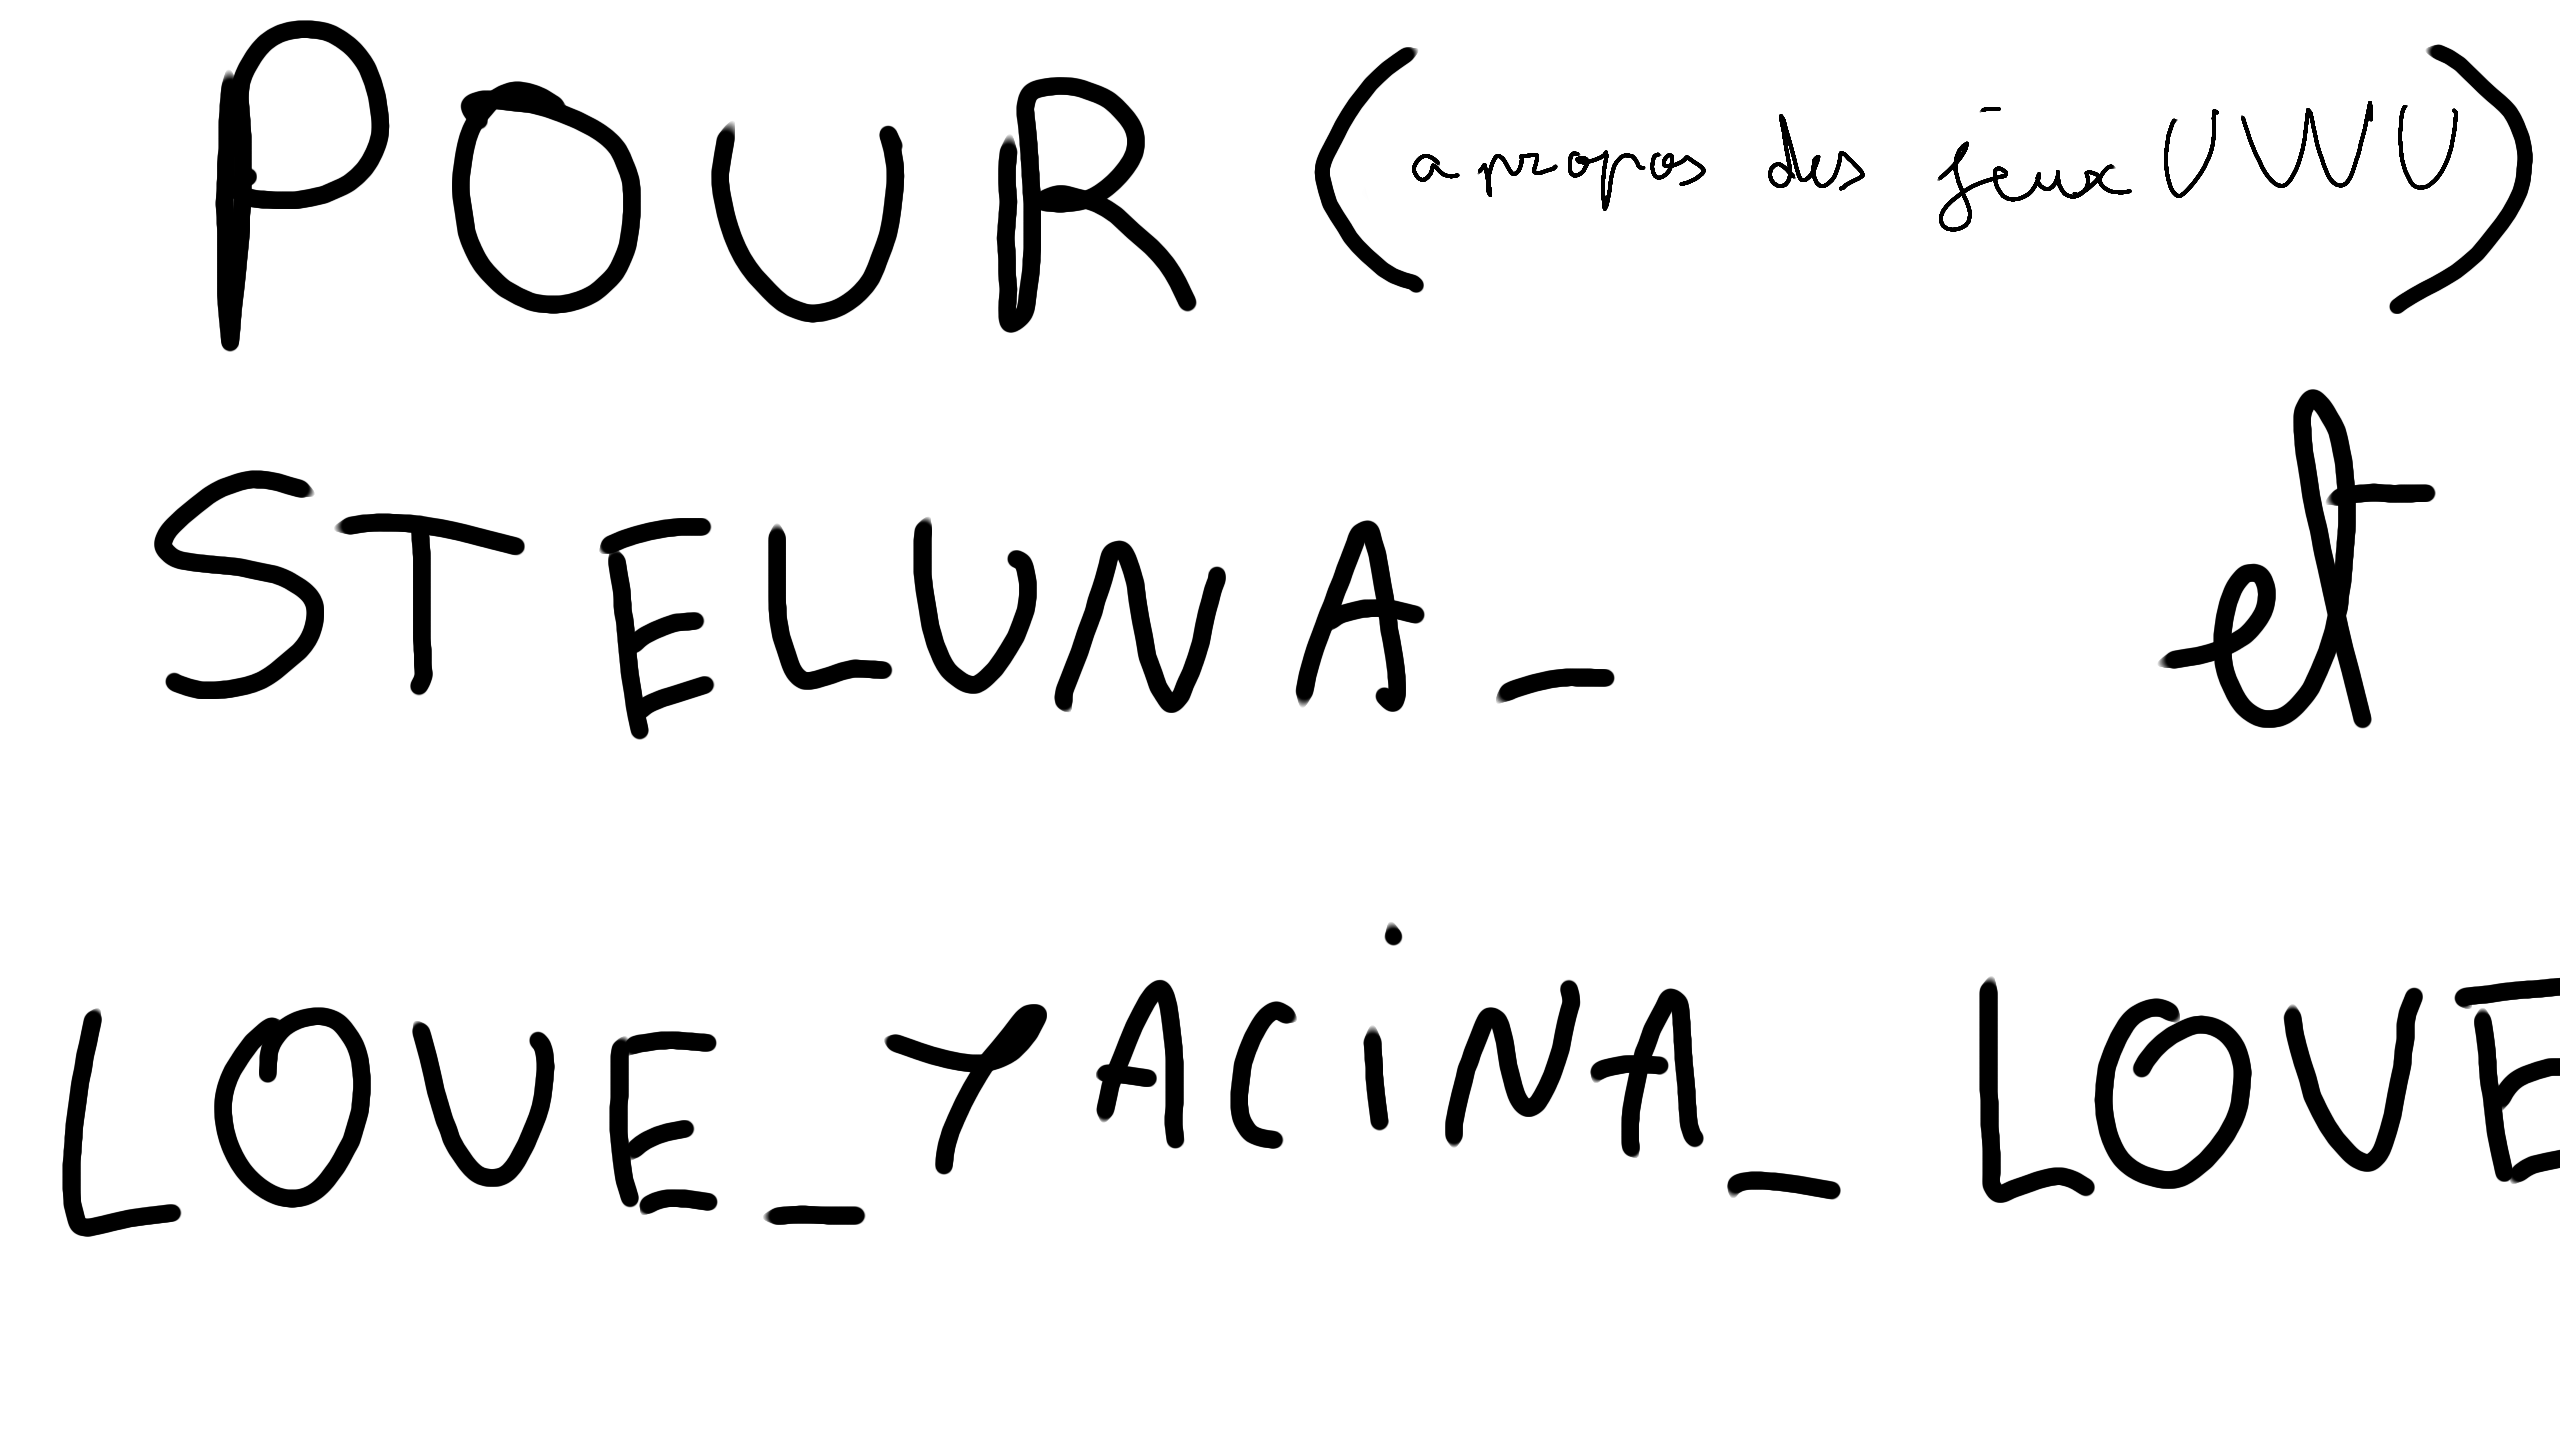 POUR (a propos des jeux UWU)
STELUNA_ et
LOVE_YACiNA_LOVE